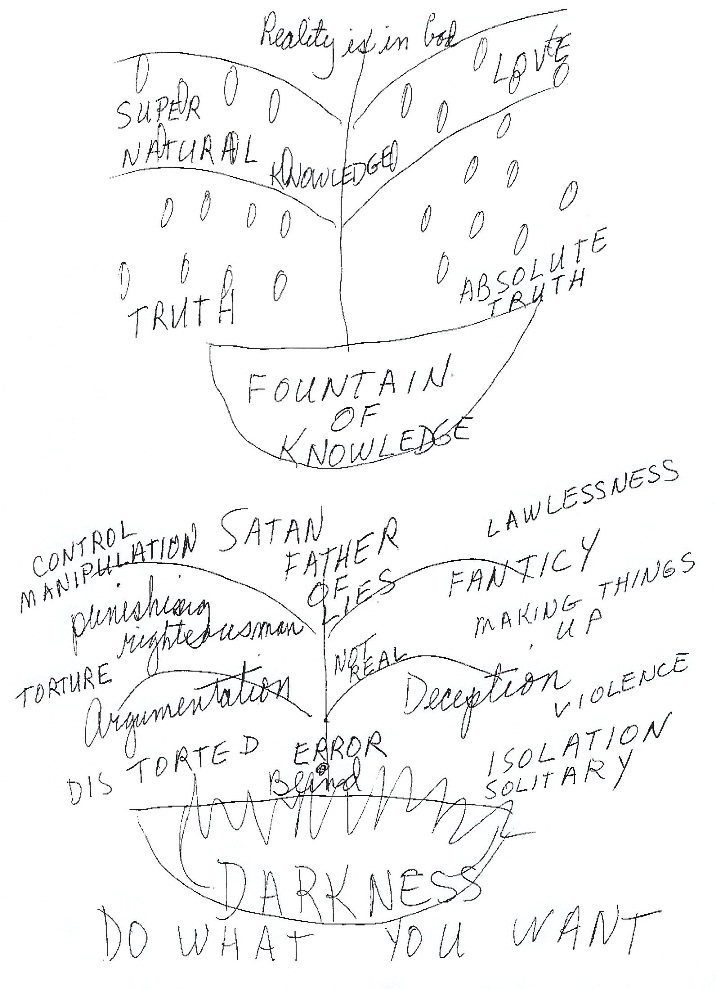 Reality is in God
LOVE
SUPER
NATURAL
KNOWLEDGE
TRUTH
ABSOLUTE
TRUTH
FOUNTAIN
OF
KNOWLEDGE
CONTROL
MANIPULATION
SATAN
FATHER
OF
LIES
LAWLESSNESS
FANTICY
MAKING THINGS
UP
punishing
righteousman
NOT
REAL
TORTURE
Argumentation
Deception
VIOLENCE
DISTORTED
ERROR
Blind
ISOLATION
SOLITARY
DARKNESS
DO WHAT YOU WANT